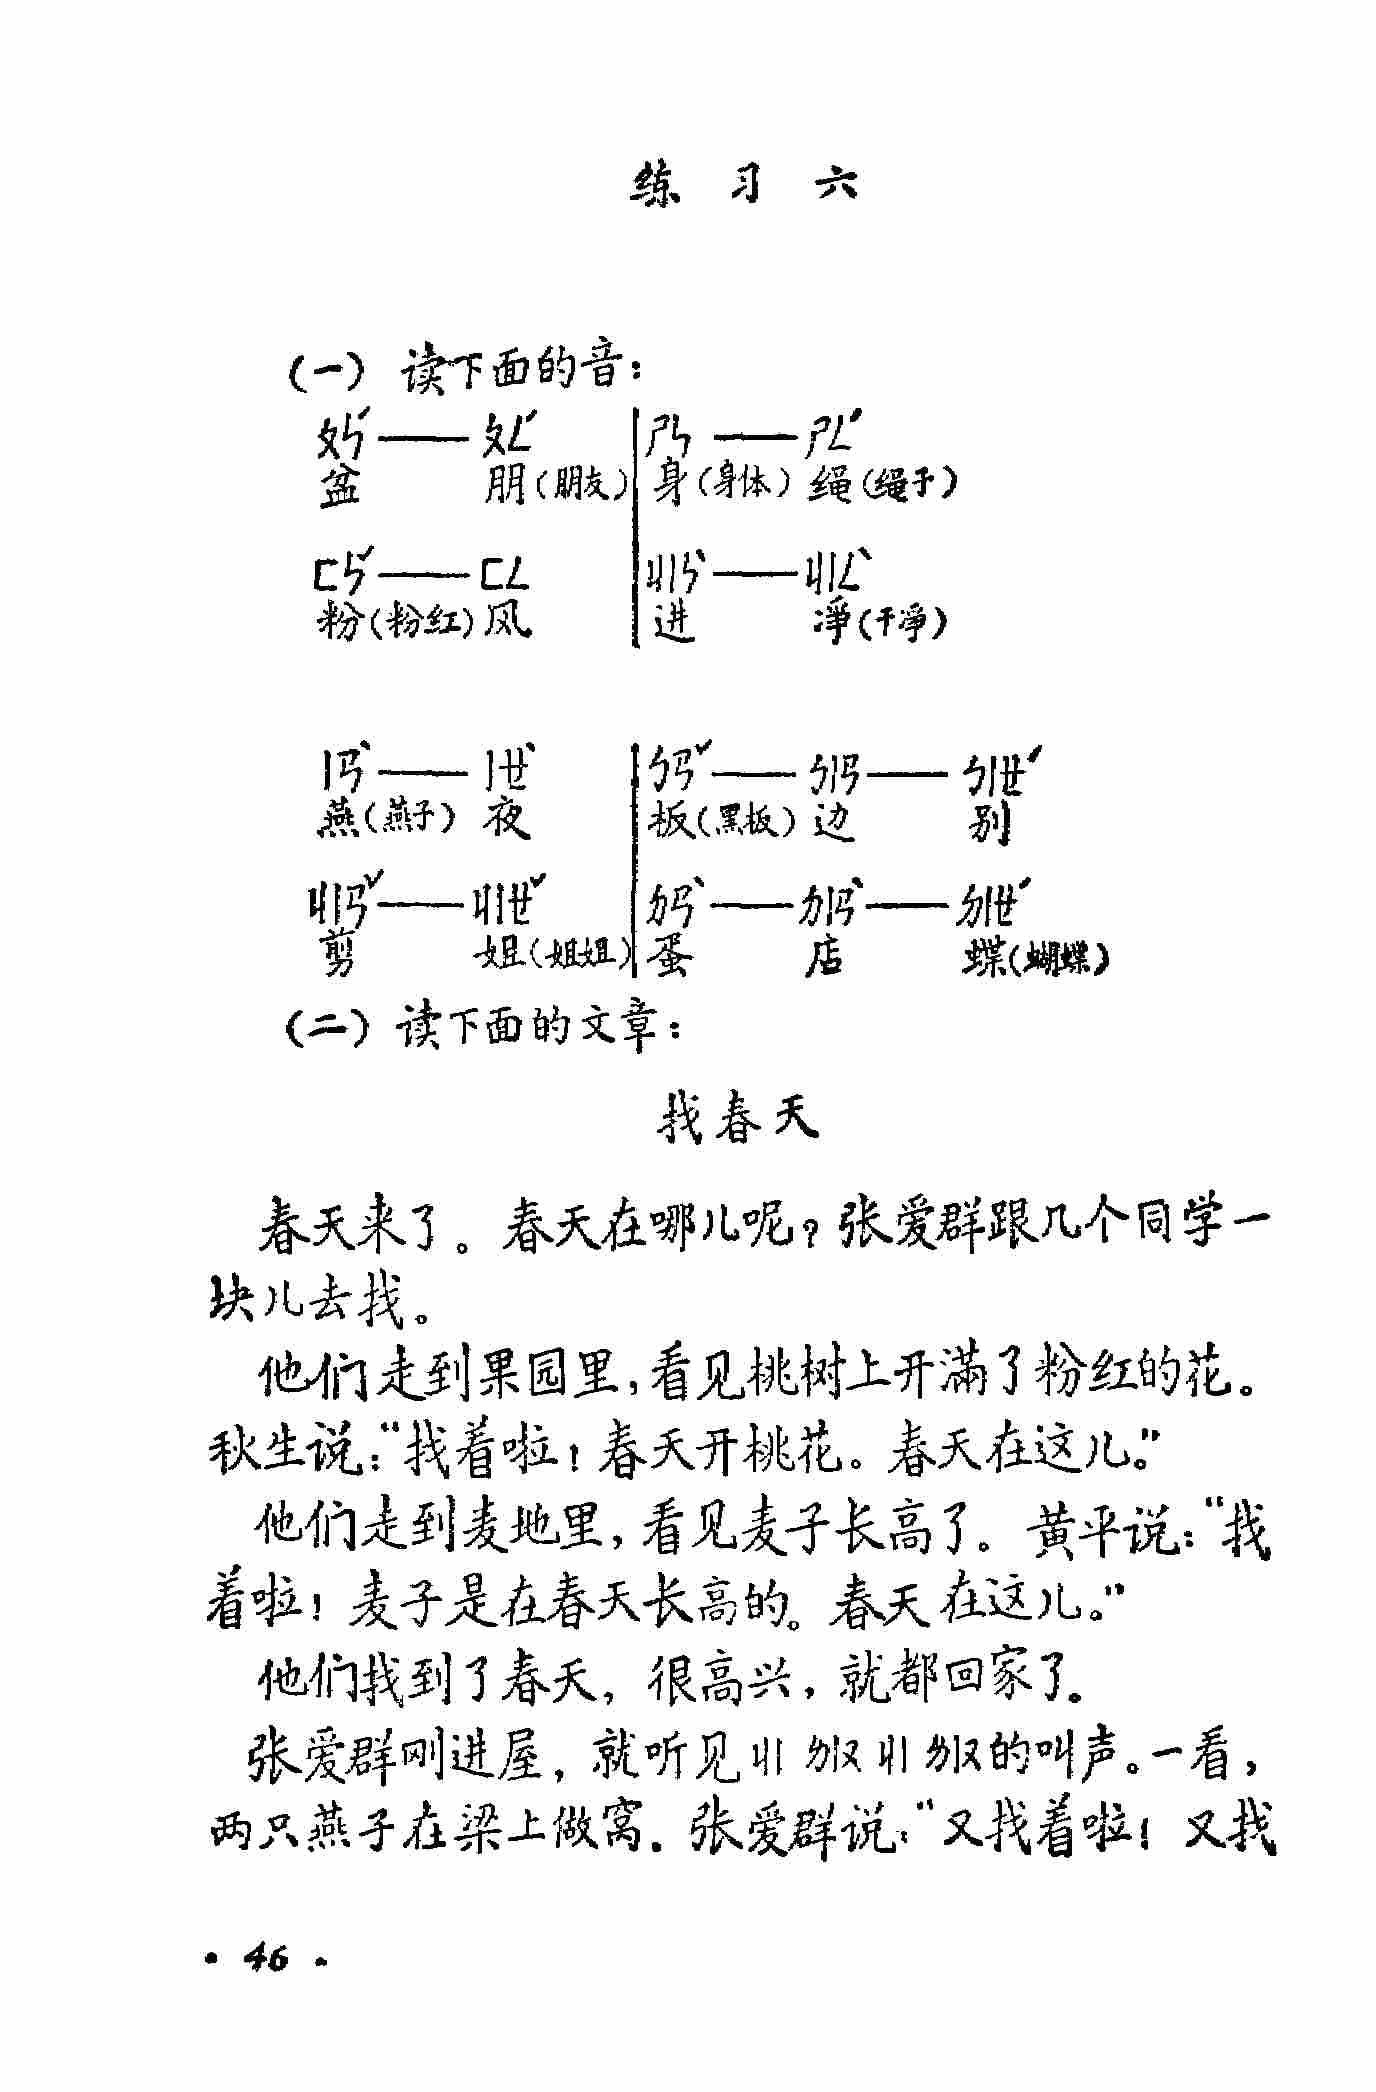 练 习 六
(一) 读下面的音：
ㄆㄣˊ——ㄆㄥˊ ㄕㄣ——ㄕㄥˊ
盆 朋(朋友) 身(身体) 绳(绳子)
ㄈㄣˇ——ㄈㄥ ㄐㄧㄣˋ——ㄐㄧㄥˋ
粉(粉红) 风 进 凈(干凈)
ㄧㄢˋ——ㄧㄝˋ ㄅㄢˇ——ㄅㄧㄢ——ㄅㄧㄝˊ
燕(燕子) 夜 板(黑板) 边 别
ㄐㄧㄢˇ——ㄐㄧㄝˇ ㄉㄢˋ——ㄉㄧㄢˋ——ㄉㄧㄝˊ
剪 姐(姐姐) 蛋 店 蝶(蝴蝶)
(二) 读下面的文章：
找春天
春天来了。春天在哪儿呢？张爱群跟几个同学一
块儿去找。
他们走到果园里，看见桃树上开满了粉红的花。
秋生说：“找着啦！春天开桃花。春天在这儿。”
他们走到麦地里，看见麦子长高了。黄平说：“找
着啦！麦子是在春天长高的。春天在这儿。”
他们找到了春天，很高兴，就都回家了。
张爱群刚进屋，就听见ㄐㄧ ㄌㄧㄡ ㄐㄧ ㄌㄧㄡ的叫声。一看，
两只燕子在梁上做窝．张爱群说：“又找着啦！又找
· 46 ·